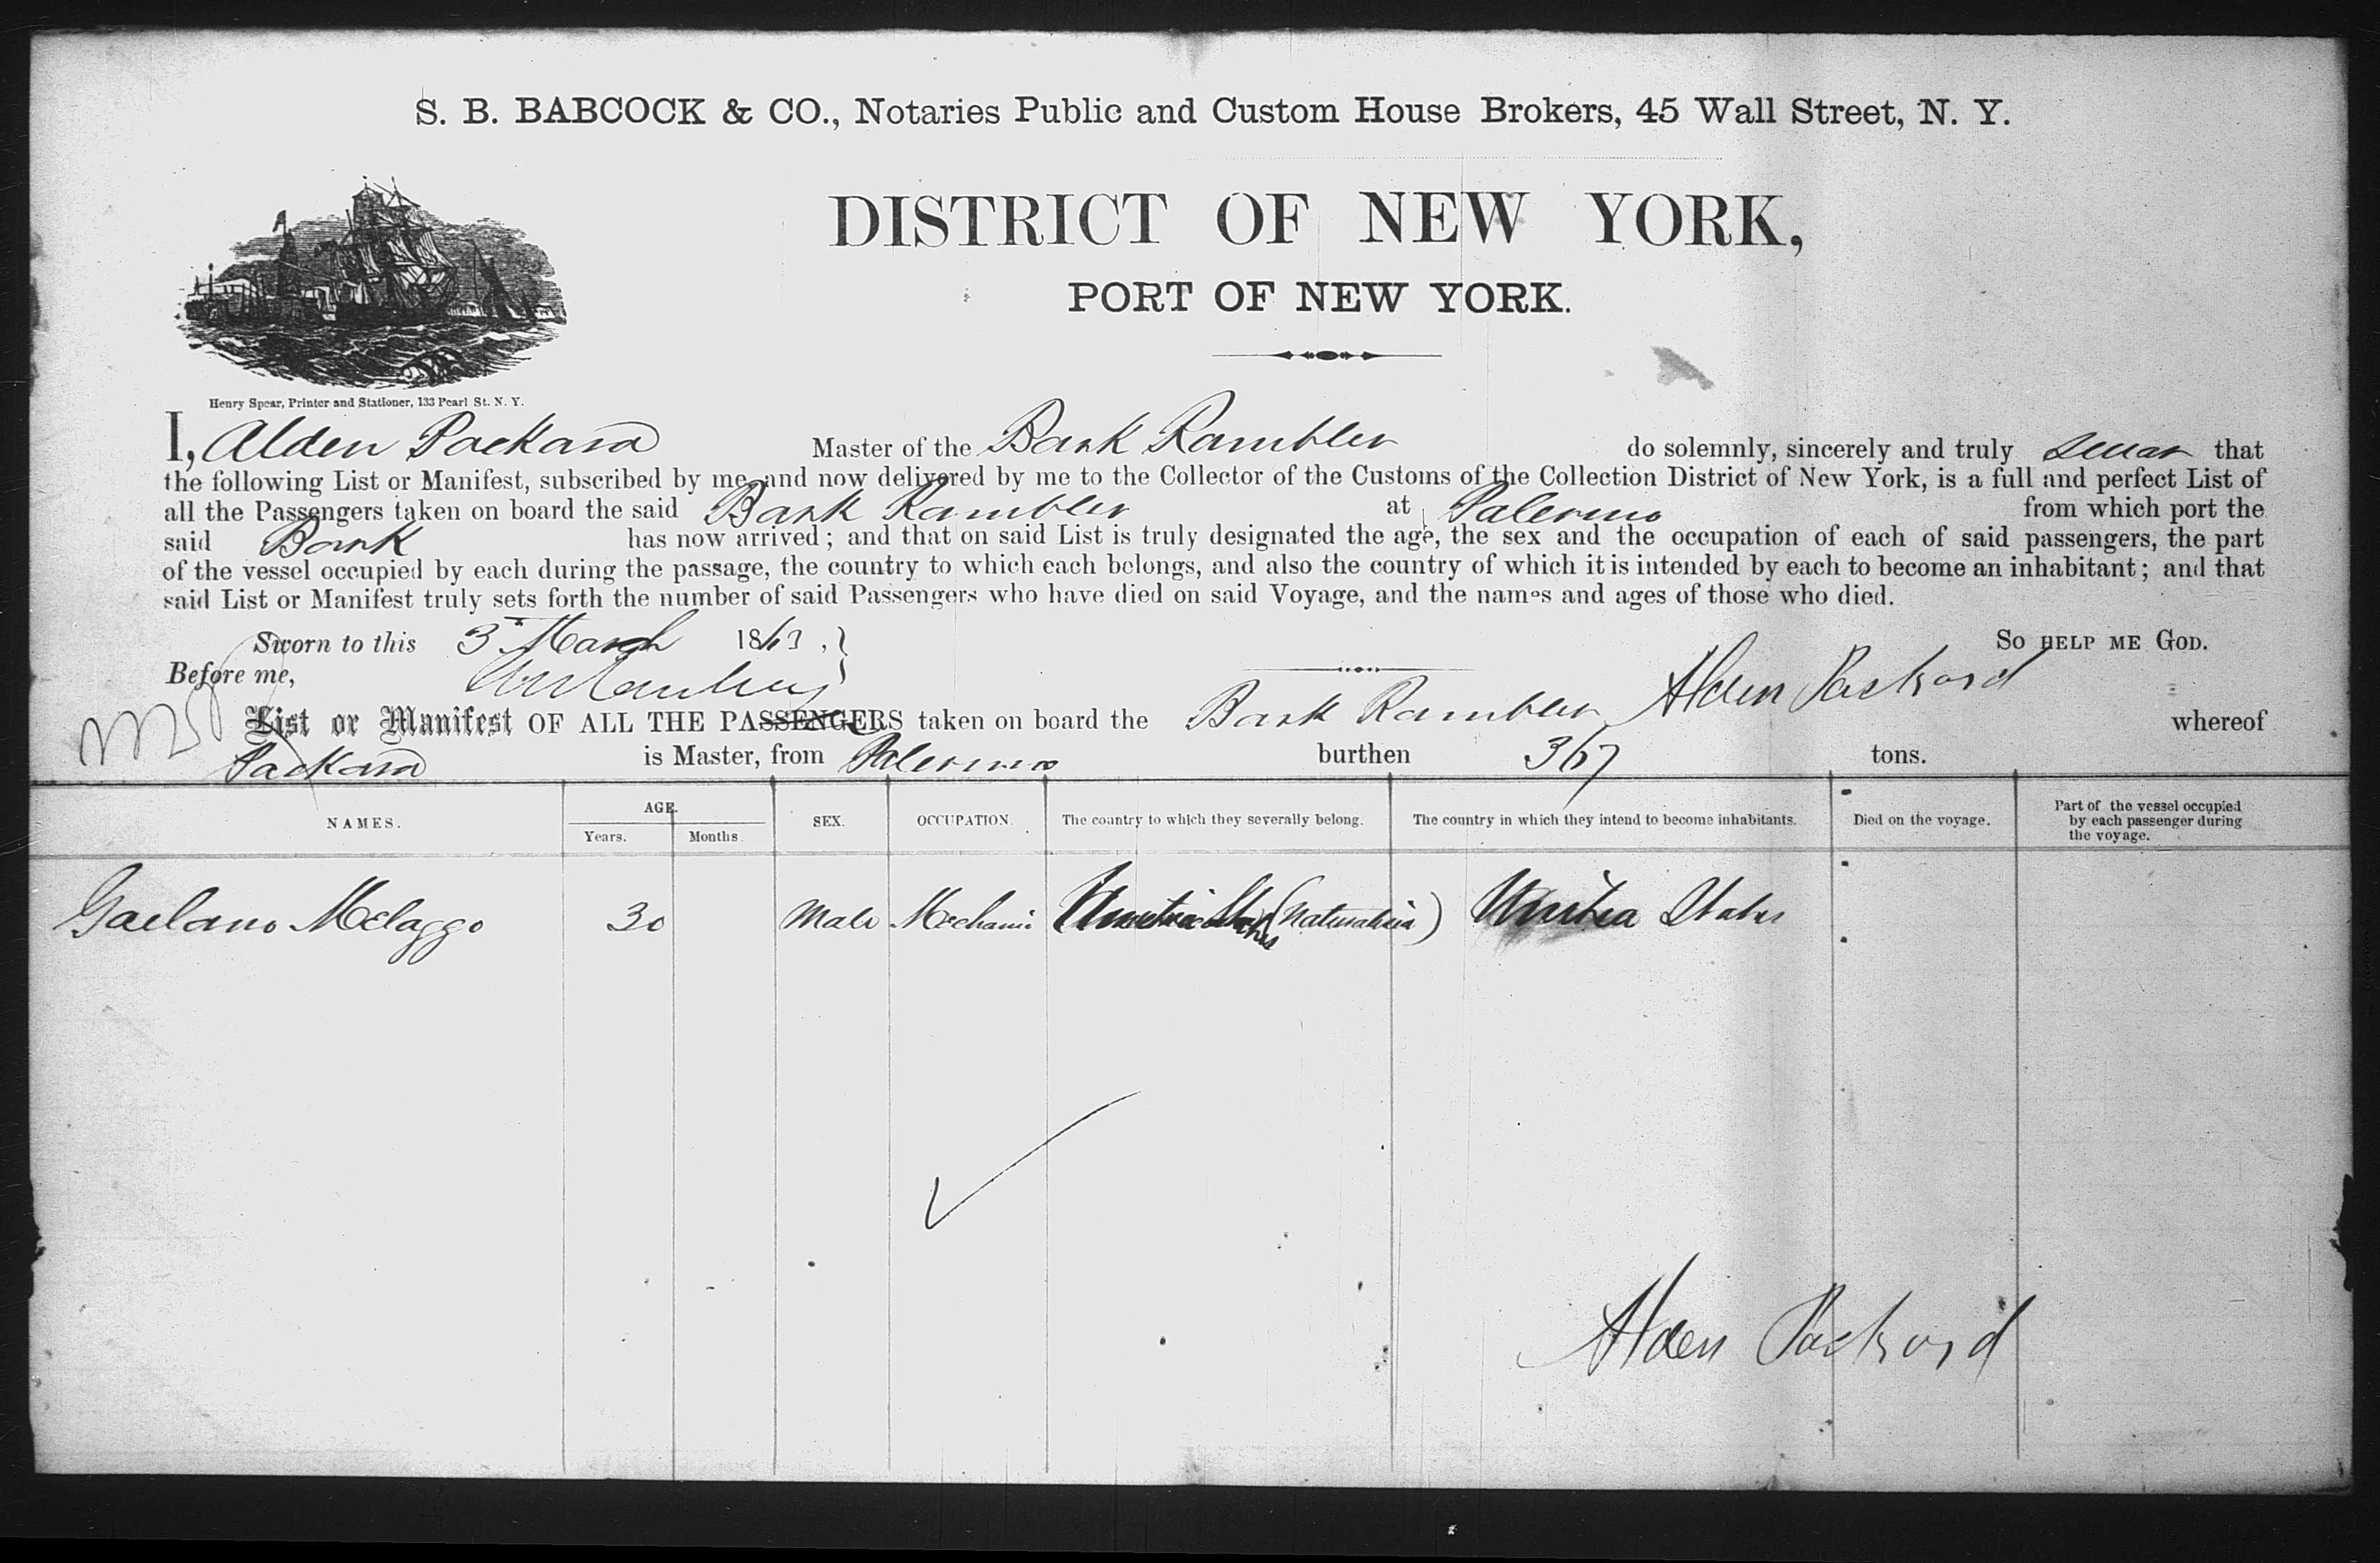 S. B. BABCOCK & CO., Notaries Public and Custom House Brokers, 45 Wall Street, N. Y.
DISTRICT OF NEW YORK,
PORT OF NEW YORK.
Henry Spear, Printer and Stationer, 133 Pearl St. N. Y.
I, Alden Packard Master of the Bark Rambler do solemnly, sincerely and truly swear that
the following List or Manifest, subscribed by me, and now delivered by me to the Collector of the Customs of the Collection District of New York, is a full and perfect List of
all the Passengers taken on board the said Bark Rambler at Palermo from which port the
said Bark has now arrived; and that on said List is truly designated the age, the sex and the occupation of each of said passengers, the part
of the vessel occupied by each during the passage, the country to which each belongs, and also the country of which it is intended by each to become an inhabitant; and that
said List or Manifest truly sets forth the number of said Passengers who have died on said Voyage, and the names and ages of those who died.
Sworn to this 3 March 1863, So HELP ME GOD.
Before me, Alden Packard
List or Manifest OF ALL THE PASSENGERS taken on board the Bark Rambler whereof
Packard is Master, from Palermo burthen 367 tons.
NAMES. AGE. Years. Months. SEX. OCCUPATION. The country to which they severally belong. The country in which they intend to become inhabitants. Died on the voyage. Part of the vessel occupied by each passenger during the voyage.
Gaelano Melaggo 30 Male Mechanic States (Naturalised) United States
Alden Packard